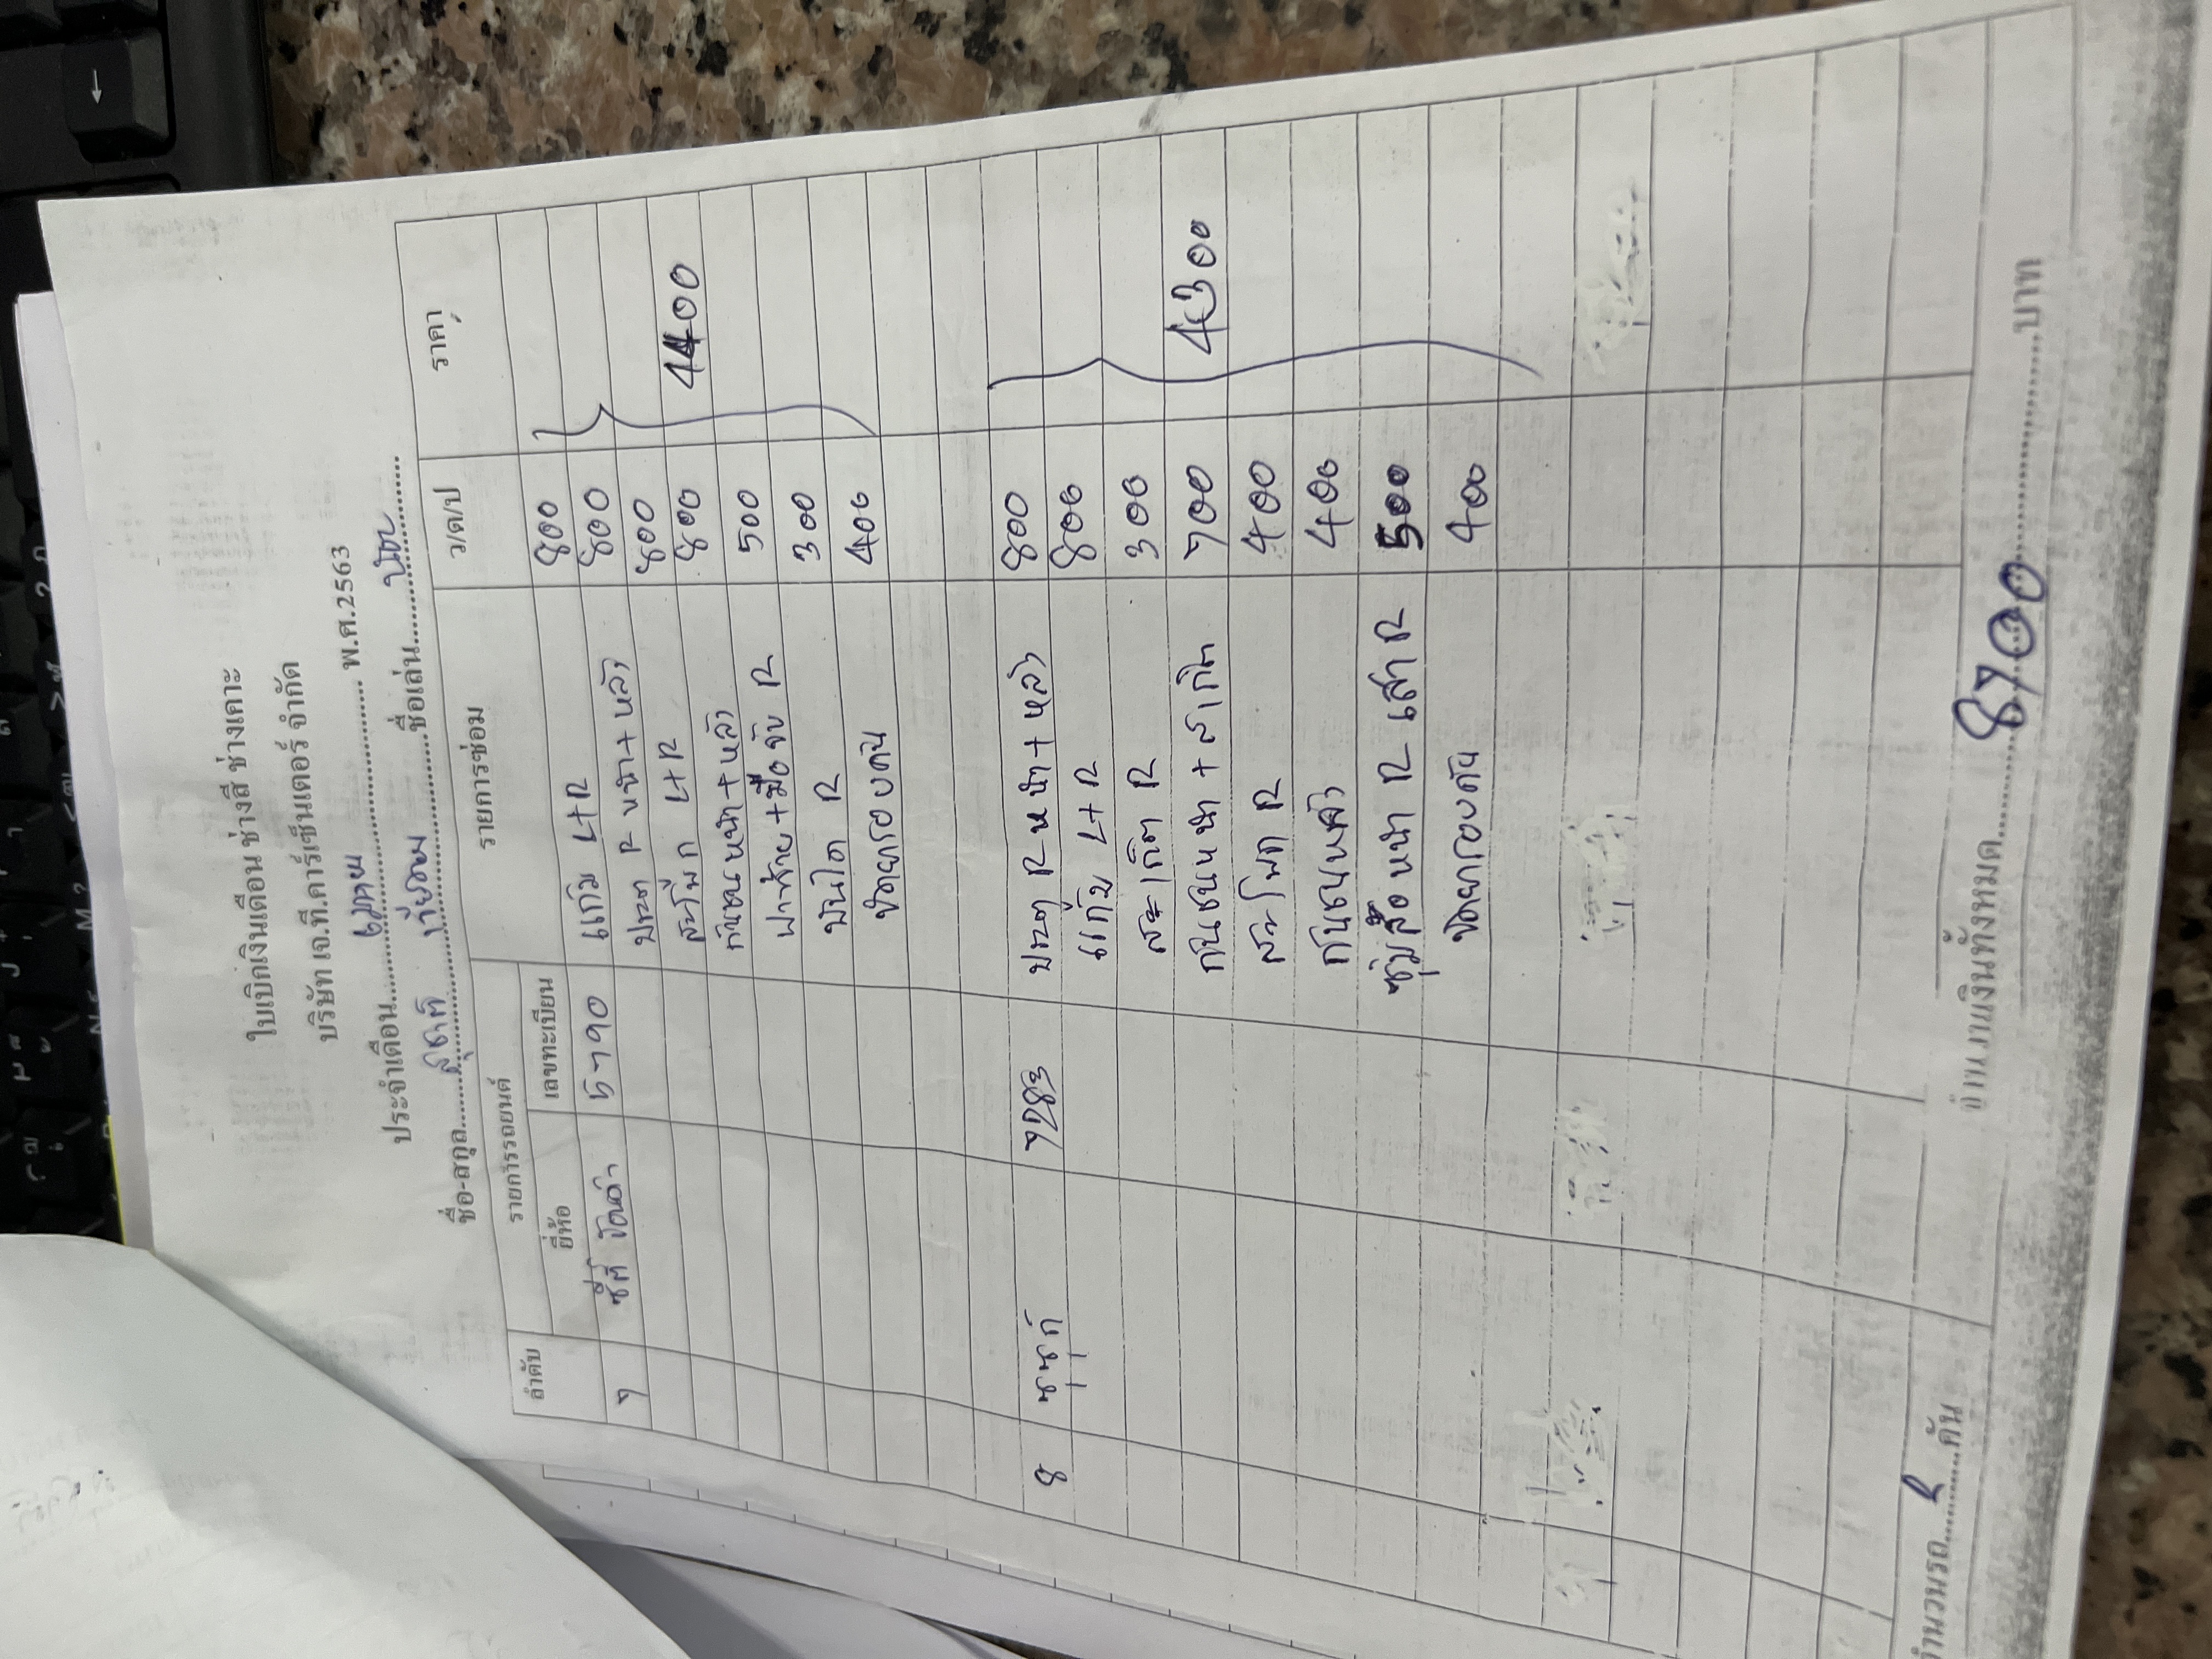 ใบเบิกเงินเดือน ช่างสี ช่างเคาะ
บริษัท เจ.ที.คาร์เซ็นเตอร์ จำกัด
ประจำเดือน........เมษายน........ พ.ศ.2563
ชื่อ-สกุล........ชื่อเล่น........
ลำดับ รายการรถยนต์ รายการซ่อม ว/ด/ป ราคา
ยี่ห้อ เลขทะเบียน
7 ซิตี้ 5-790 แก้ม L+R 800
ประตู R หน้า+หลัง 800
สะโพก L+R 800
กันชนหน้า+หลัง 800 4400
ฝาซ้าย+มือจับ R 500
บันได R 300
ขัดยกรอบคัน 400
8 ซูซุกิ 7283 ประตู R หน้า+หลัง 800
แก้ม L+R 800
สะเก็ต R 300
กันชนหน้า+สเกิ๊ต 700 4300
สะโพก R 400
กันชนหลัง 400
ซุ้มล้อหน้า R เสา R 500
ขัดยกรอบคัน 400
จำนวนรถ........2........คัน จำนวนเงินทั้งหมด........8700........บาท